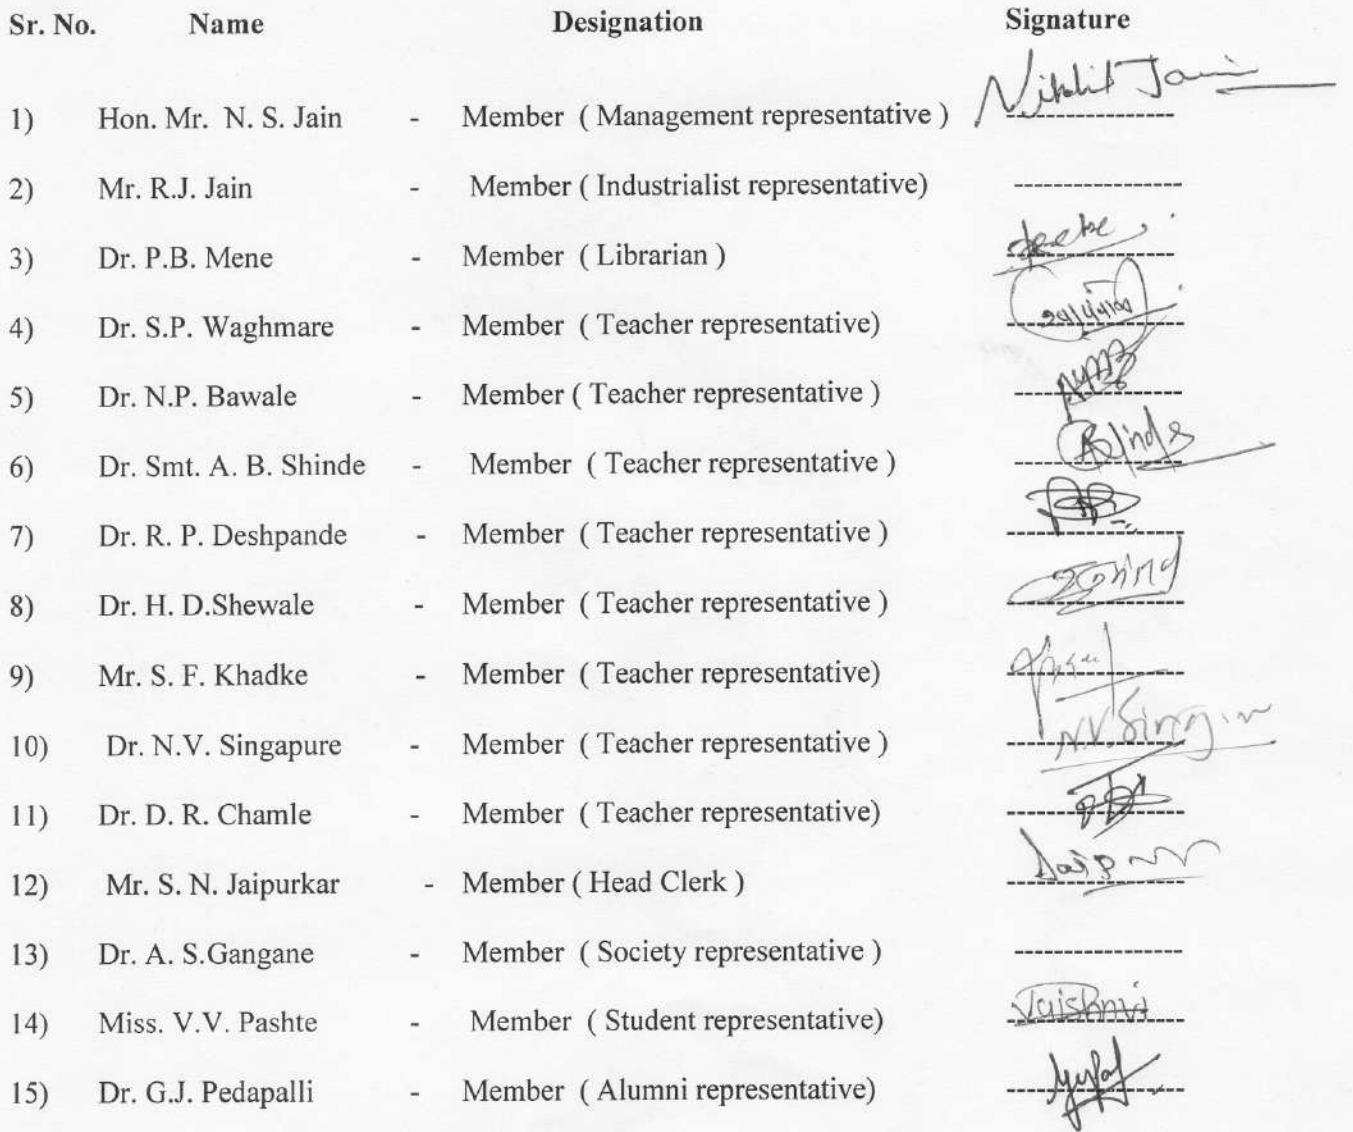 Sr. No. Name Designation Signature
1) Hon. Mr. N. S. Jain - Member ( Management representative ) Nikhil Jain
2) Mr. R.J. Jain - Member ( Industrialist representative) ------------------
3) Dr. P.B. Mene - Member ( Librarian )
4) Dr. S.P. Waghmare - Member ( Teacher representative)
5) Dr. N.P. Bawale - Member ( Teacher representative )
6) Dr. Smt. A. B. Shinde - Member ( Teacher representative )
7) Dr. R. P. Deshpande - Member ( Teacher representative )
8) Dr. H. D.Shewale - Member ( Teacher representative )
9) Mr. S. F. Khadke - Member ( Teacher representative)
10) Dr. N.V. Singapure - Member ( Teacher representative )
11) Dr. D. R. Chamle - Member ( Teacher representative)
12) Mr. S. N. Jaipurkar - Member ( Head Clerk )
13) Dr. A. S.Gangane - Member ( Society representative ) ------------------
14) Miss. V.V. Pashte - Member ( Student representative) Vaishnvi
15) Dr. G.J. Pedapalli - Member ( Alumni representative)